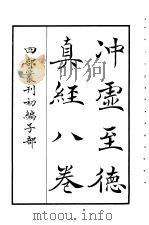 沖虛至德
真經八卷
四部叢刊初編子部
mtoou.info